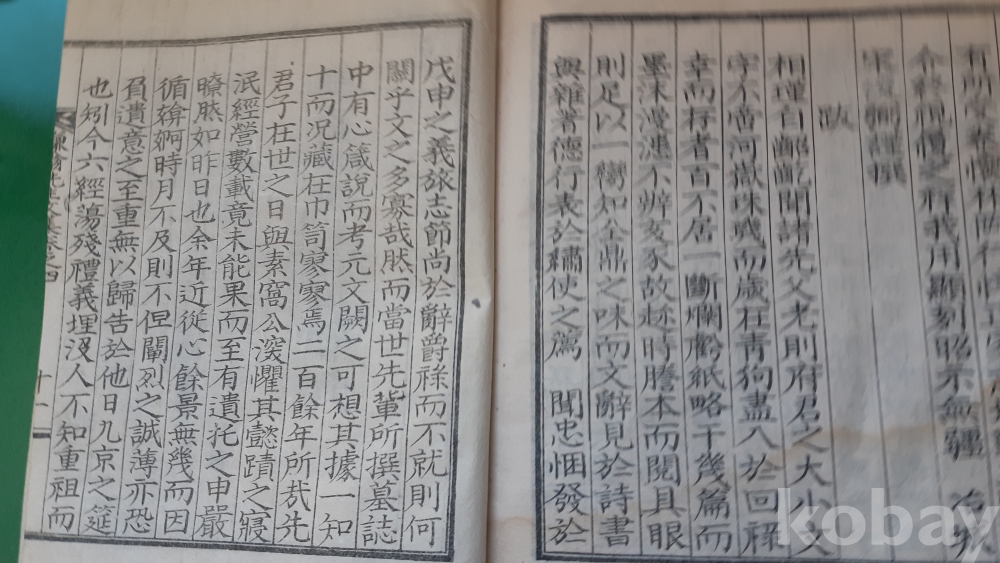 有所
我用顯刻昭示無疆
謹撰
跋
相瑾自齠齔聞諸先父老則府君之大小文
字不啻河嶽珠璣而歲在青狗盡入於回祿
幸而存者百不居一斷爛虧紙略干幾篇而
墨沫漫漶不辨亥豕故玆時謄本而閱具眼
則足以一臠知全鼎之味而文辭見於詩書
與雜著德行表於繡使之薦 聞忠悃發於
戊申之義旅志節尚於辭爵祿而不就則何
關乎文之多寡哉然而當世先輩所撰墓誌
中有心箴說而考元文闕之可想其據一知
十而况藏在巾笥寥寥焉二百餘年所哉先
君子在世之日與素窩公深懼其懿蹟之寢
泯經營數載竟未能果而至有遺托之申嚴
瞭然如昨日也余年近從心餘景無幾而因
循媕婀時月不及則不但闡烈之誠薄亦恐
負遺意之至重無以歸告於他日九京之筵
也矧今六經蕩殘禮義埋沒人不知重祖而
卷之四 十一
kobay